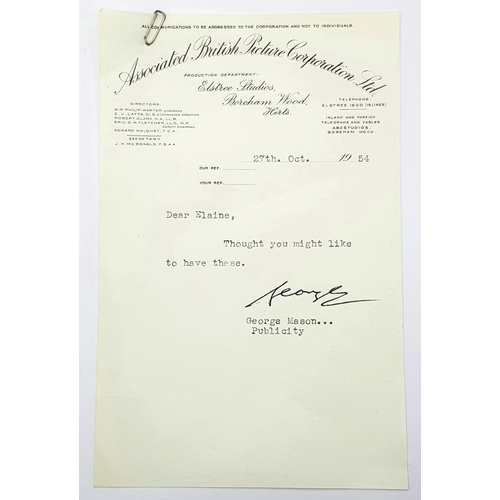 ALL COMMUNICATIONS TO BE ADDRESSED TO THE CORPORATION AND NOT TO INDIVIDUALS.
Associated British Picture Corporation, Ltd.
PRODUCTION DEPARTMENT:-
Elstree Studios,
Boreham Wood,
Herts.
DIRECTORS
SIR PHILIP WARTER CHAIRMAN
C. J. LATTA, (U.S.A.) MANAGING DIRECTOR
ROBERT CLARK M.A., LL.B.
ERIC G. M. FLETCHER LL.D., M.P.
DEPUTY CHAIRMAN
EDWARD MALONEY, F.C.A.
SECRETARY:
J. H. McDONALD, F.S.A.A.
TELEPHONE:
ELSTREE 1600 (15 LINES)
INLAND AND FOREIGN
TELEGRAMS AND CABLES
ABCSTUDIOS,
BOREHAM WOOD.
27th. Oct. 1954
OUR REF.
YOUR REF.
Dear Elaine,
Thought you might like
to have these.
George
George Mason...
Publicity